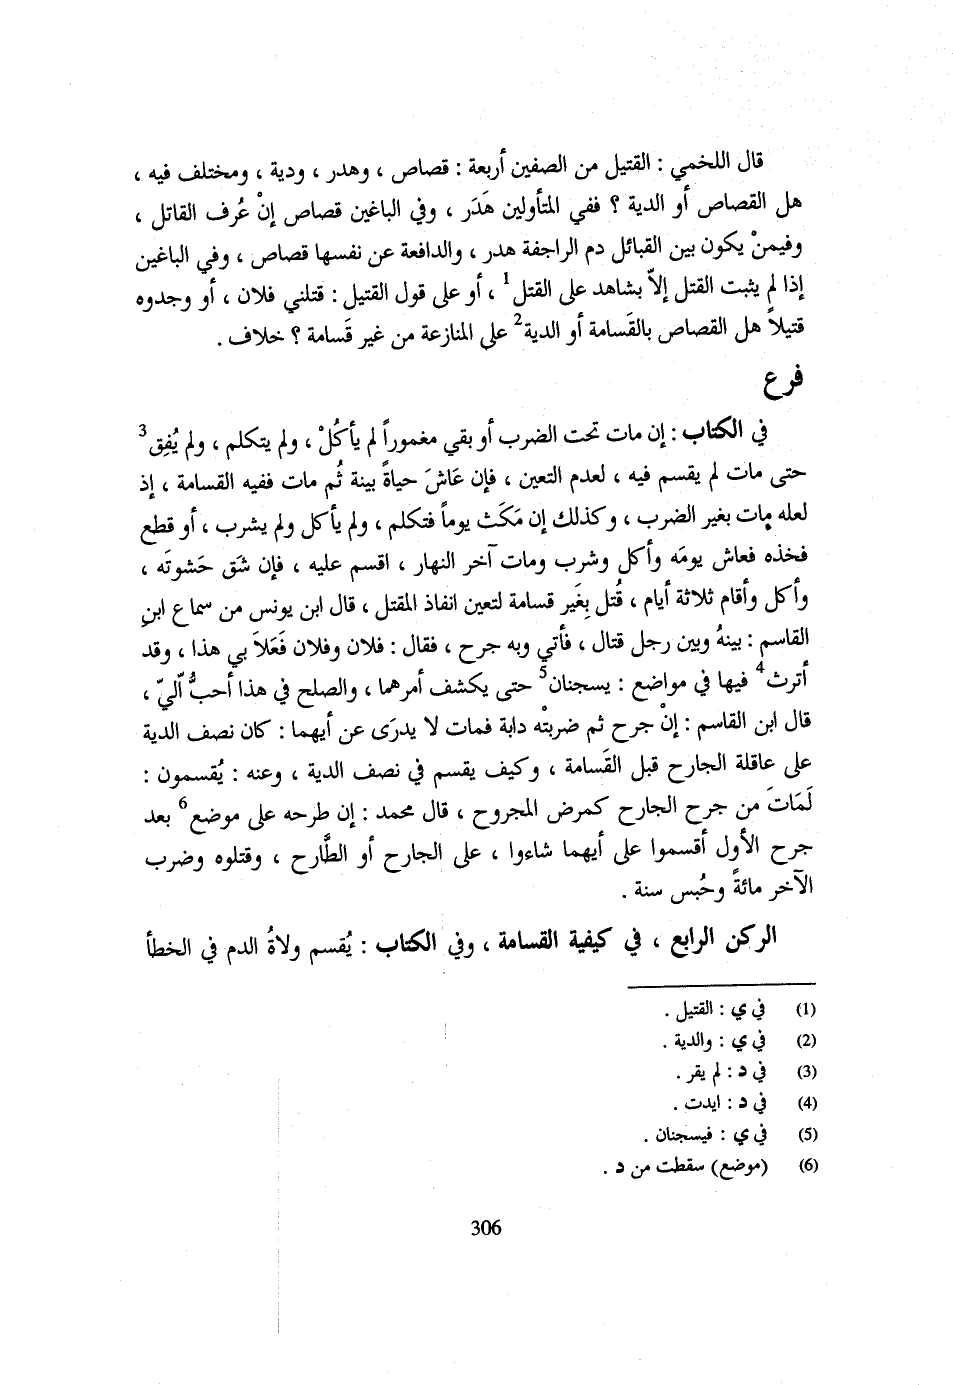 قال اللخمي : القتيل من الصفين أربعة : قصاص ، وهدر ، ودية ، ومختلف فيه ،
هل القصاص أو الدية ؟ ففي المتأولين هَدَر ، وفي الباغين قصاص إنْ عُرف القاتل ،
وفيمنْ يكون بين القبائل دم الراجفة هدر ، والدافعة عن نفسها قصاص ، وفي الباغين
إذا لم يثبت القتل إلاّ بشاهد على القتل1 ، أو على قول القتيل : قتلني فلان ، أو وجدوه
قتيلاً هل القصاص بالقَسامة أو الدية2 على المنازعة من غير قَسامة ؟ خلاف .
فرع
في الكتاب : إن مات تحت الضرب أو بقي مغموراً لم يأكُلْ ، ولم يتكلم ، ولم يُفِق3
حتى مات لم يقسم فيه ، لعدم التعين ، فإن عَاشَ حياةً بينة ثُم مات ففيه القسامة ، إذ
لعله مات بغير الضرب ، وكذلك إن مَكَث يوماً فتكلم ، ولم يأكل ولم يشرب ، أو قطع
فخذه فعاش يومَه وأكل وشرب ومات آخر النهار ، اقسم عليه ، فإن شَق حَشوتَه ،
وأكل وأقام ثلاثة أيام ، قُتل بِغَير قسامة لتعين انفاذ المقتل ، قال ابن يونس من سماع ابنِ
القاسم : بينهُ وبين رجل قتال ، فأتي وبه جرح ، فقال : فلان وفلان فَعَلاَ بي هذا ، وقد
أترث4 فيها في مواضع : يسجنان5 حتى يكشف أمرهما ، والصلح في هذا أحبُّ اّليّ ،
قال ابن القاسم : إنْ جرح ثم ضربتْه دابة فمات لا يدرَى عن أيهما : كان نصف الدية
على عاقلة الجارح قبل القَسامة ، وكيف يقسم في نصف الدية ، وعنه : يُقسمون :
لَمَاتَ من جرح الجارح كمرض المجروح ، قال محمد : إن طرحه على موضع6 بعد
جرح الأول أقسموا على أيهما شاءوا ، على الجارح أو الطَّارح ، وقتلوه وضرب
الآخر مائةً وحُبس سنة .
الركن الرابع ، في كيفية القسامة ، وفي الكتاب : يُقسم ولاةُ الدم في الخطأ
(1) في ي : القتيل .
(2) في ي : والدية .
(3) في د : لم يقر .
(4) في د : ايدت .
(5) في ي : فيسجنان .
(6) (موضع) سقطت من د .
306